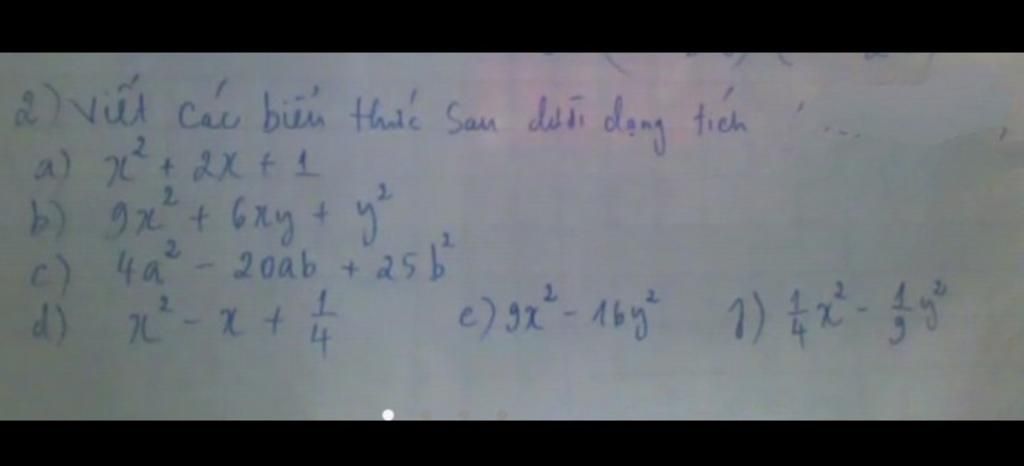 2) Viết các biến thức sau dưới dạng tích ...
a) x² + 2x + 1
b) 9x² + 6xy + y²
c) 4a² - 20ab + 25b²
d) x² - x + 1/4 e) 9x² - 16y² f) 1/4 x² - 1/9 y²